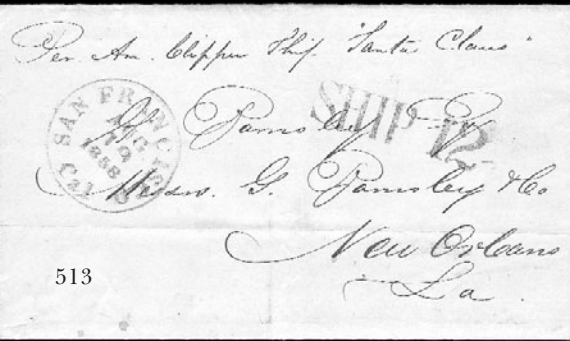 Per Am. Clipper Ship "Santa Claus"
SAN FRANCISCO
AUG
1858
Cal
SHIP 12
Messrs. G. & Co
New Orleans
La.
513